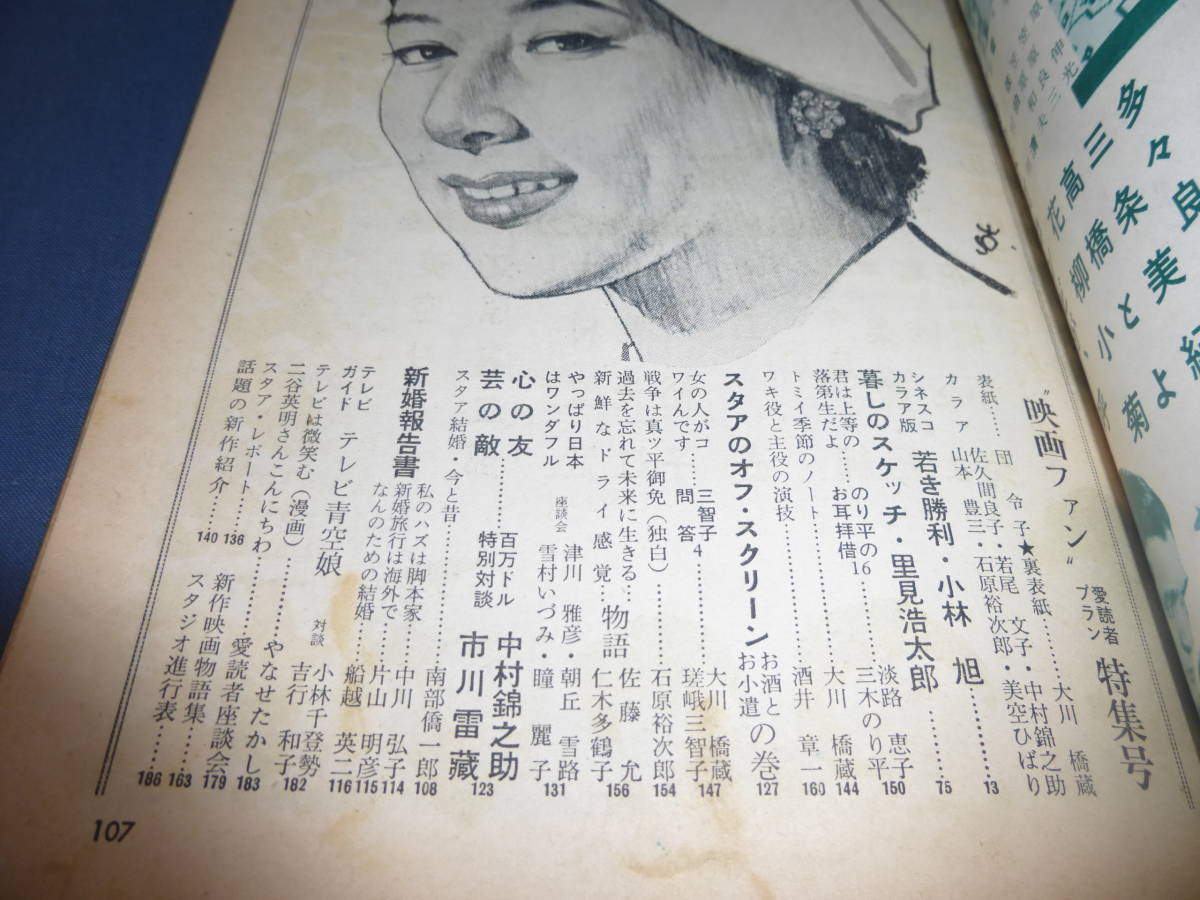 “映画ファン” 愛読者プラン 特集号
表紙……団 令子★裏表紙……大川 橋蔵
カラア 佐久間良子・若尾 文子・中村錦之助
山本 豊三・石原裕次郎・美空ひばり
シネスコカラア版 若き勝利・小林 旭……13
暮しのスケッチ・里見浩太郎……75
君は上等の落第生だよ……のり平のお耳拝借16 淡路 恵子 三木のり平 150
トミイ季節のノート……大川 橋蔵 144
ワキ役と主役の演技……酒井 章一 160
スタアのオフ・スクリーン お酒とお小遣の巻 127
女の人がコワイんです……三智子問答4 大川 橋蔵 瑳峨三智子 147
戦争は真ッ平御免(独白)……石原裕次郎 154
過去を忘れて未来に生きる……佐藤 允
新鮮なドライ感覚…物語 仁木多鶴子 156
やっぱり日本はワンダフル 座談会 津川 雅彦・朝丘 雪路 雪村いづみ・瞳 麗子 131
心の友 芸の敵……百万ドル特別対談 中村錦之助 市川 雷蔵 123
スタア結婚・今と昔……南部僑一郎 108
新婚報告書
私のハズは脚本家……中川 弘子 114
新婚旅行は海外で……片山 明彦 115
なんのための結婚……船越 英二 116
テレビガイド テレビ青空娘 対談 小林千登勢 吉行 和子 182
テレビは微笑む(漫画)……やなせたかし 183
二谷英明さんこんにちわ……愛読者座談会 179
スタア・レポート……136
新作映画物語集……163
話題の新作紹介……140
スタジオ進行表……186
107
多々良
三条美紀
高橋とよ
花柳小菊